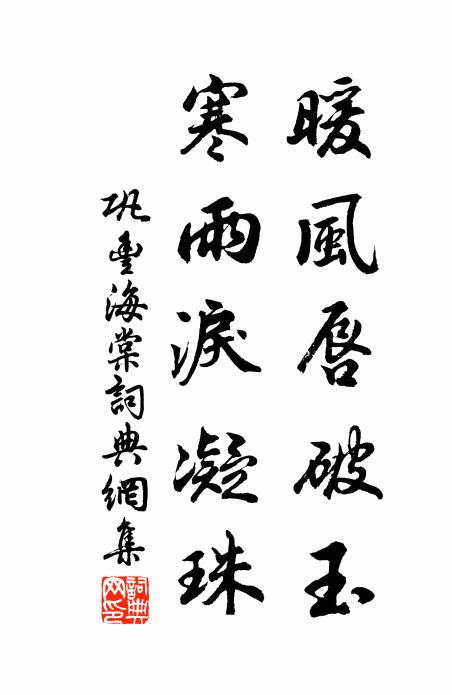 暖風唇破玉
寒雨淚凝珠
巩豊海棠詞典網集
詞典網印